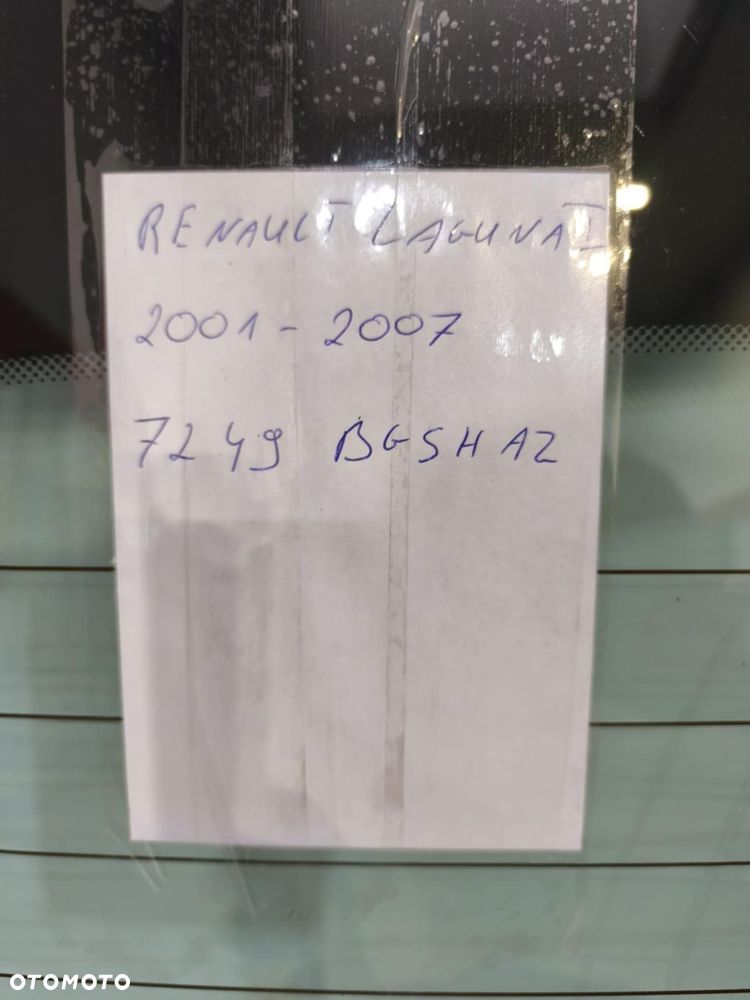 RENAULT LAGUNA II
2001 - 2007
7249 BGSHAZ
OTOMOTO